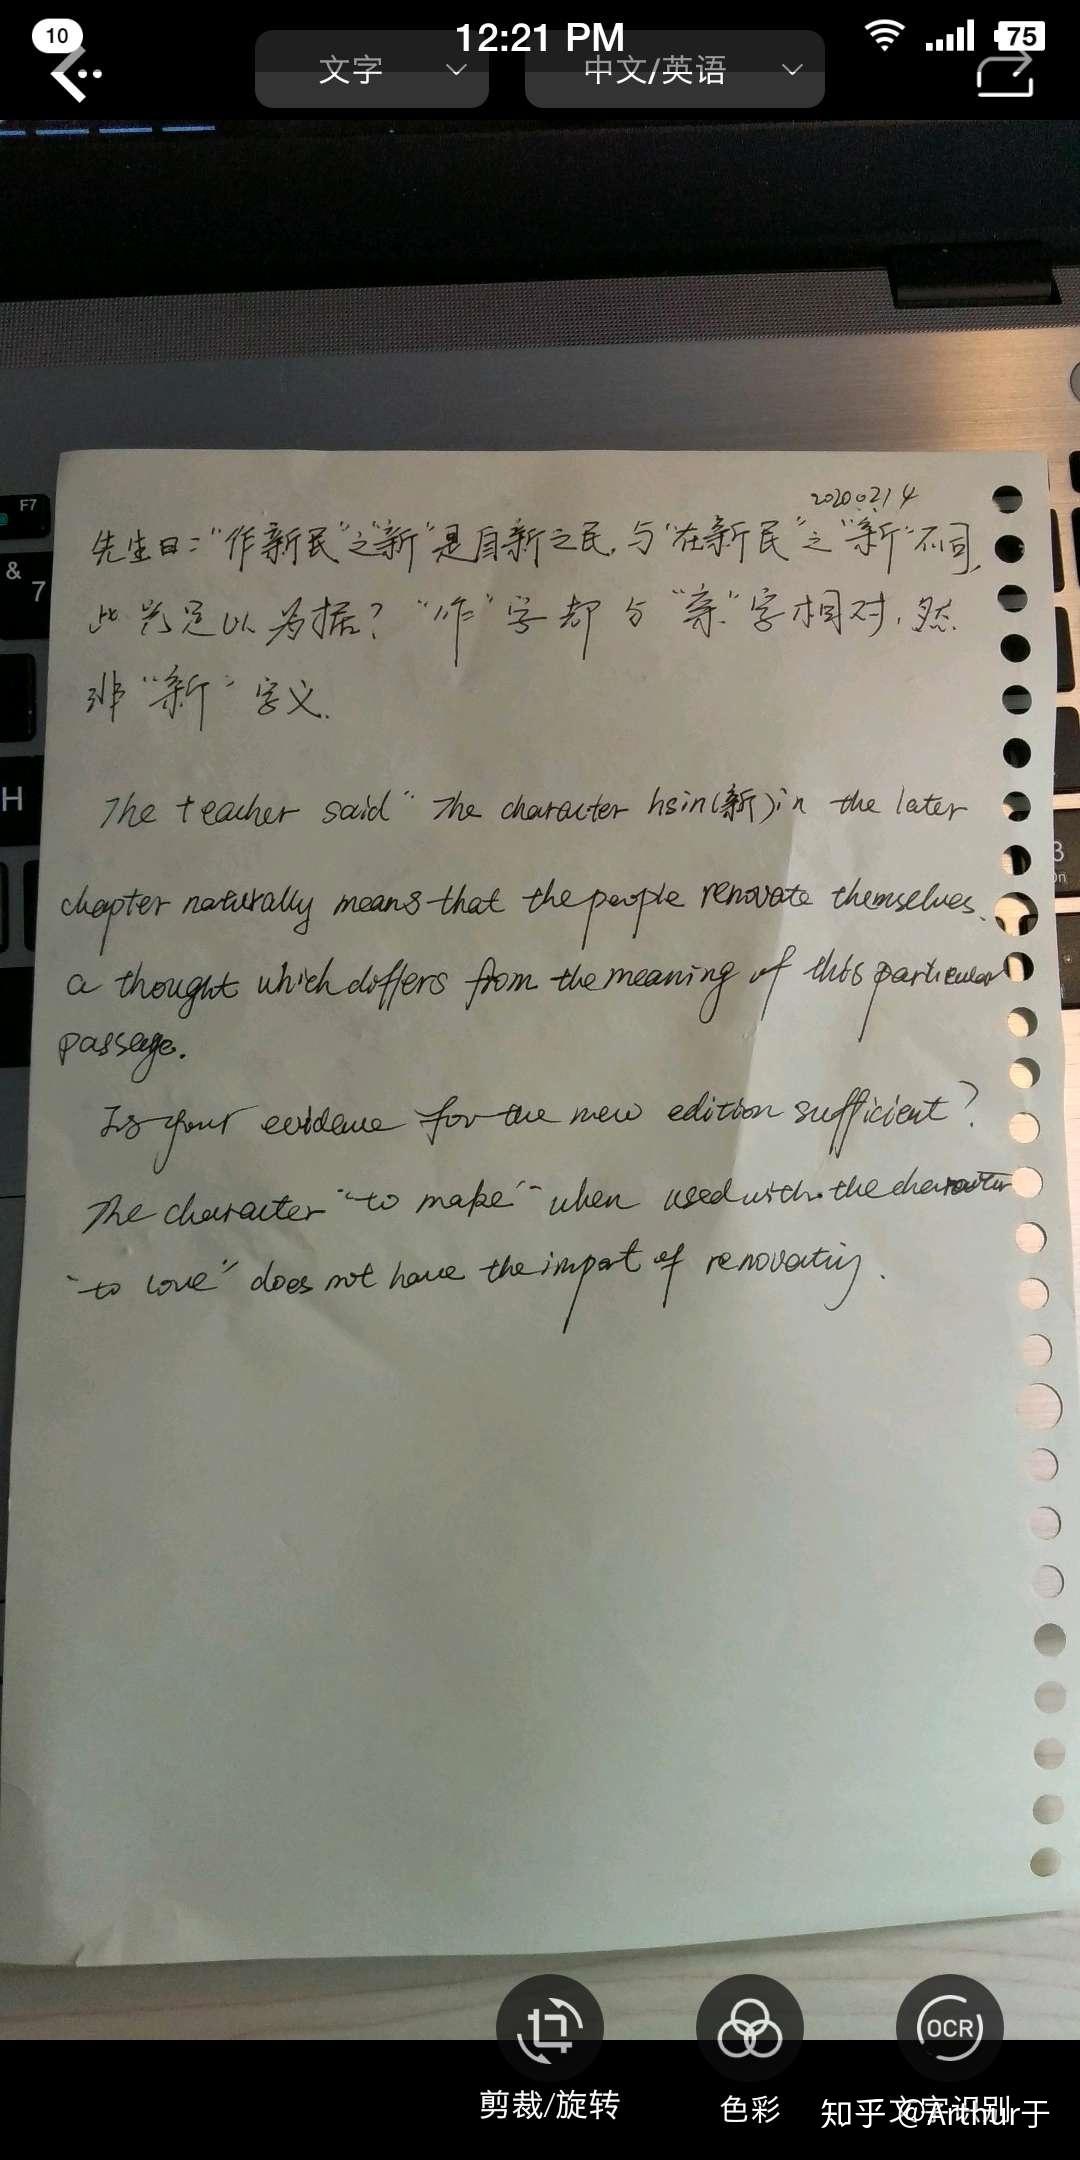 10
12:21 PM
75
文字
中文/英语
F7
&
7
H
20200214
先生曰："作新民"之"新"是自新之民，与"在新民"之"新"不同，
此岂足以为据？"作"字却与"亲"字相对，然
非"新"字义.
The teacher said "The character hsin(新)in the later
chapter naturally means that the people renovate themselves.
a thought which differs from the meaning of this particular
passage.
Is your evidence for the new edition sufficient?
The character "to make" when used with the character
"to love" does not have the import of renovating.
剪裁/旋转
色彩
OCR
文字识别
知乎 @Arthur于